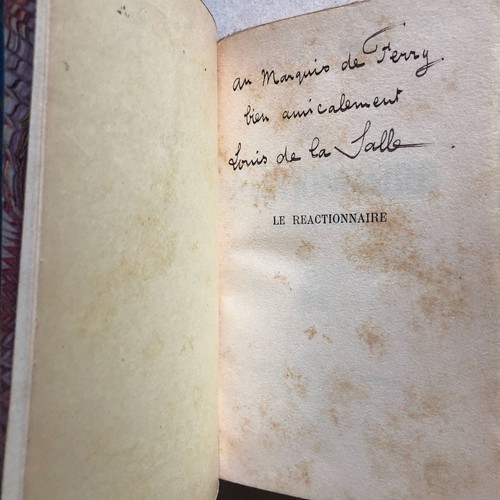 au Marquis de Ferry.
bien amicalement
Louis de la Salle.
LE REACTIONNAIRE